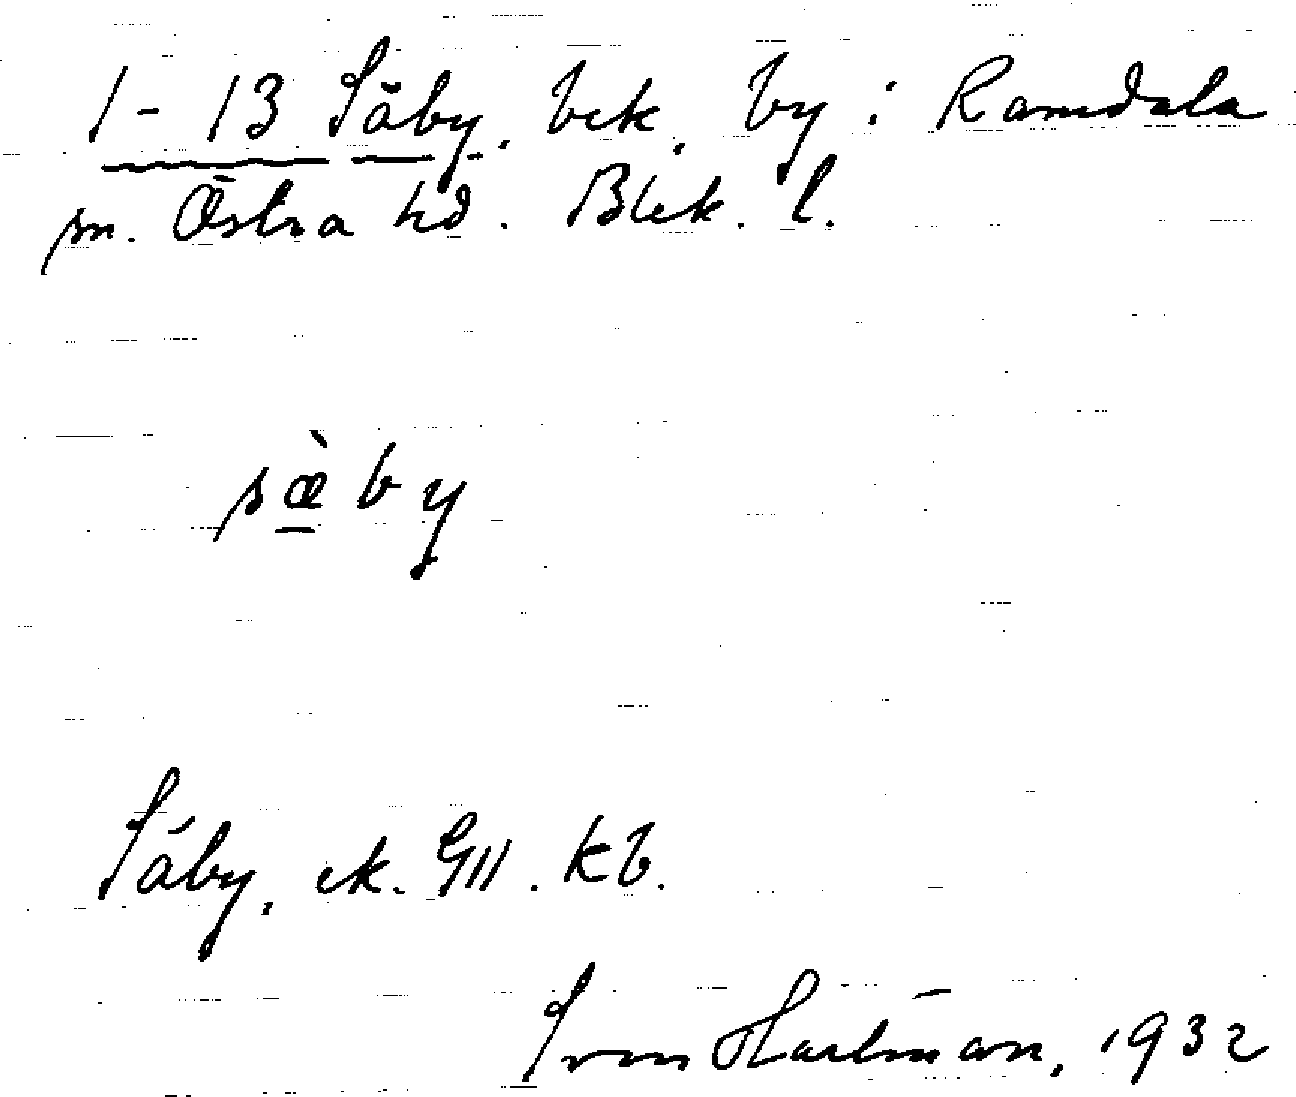 1-13 Säby, bek. by i Ramdala
sn. Östra hd. Blek. l.
sæ̀by
Säby, ek. GII. kb.
Sven Hartman, 1932